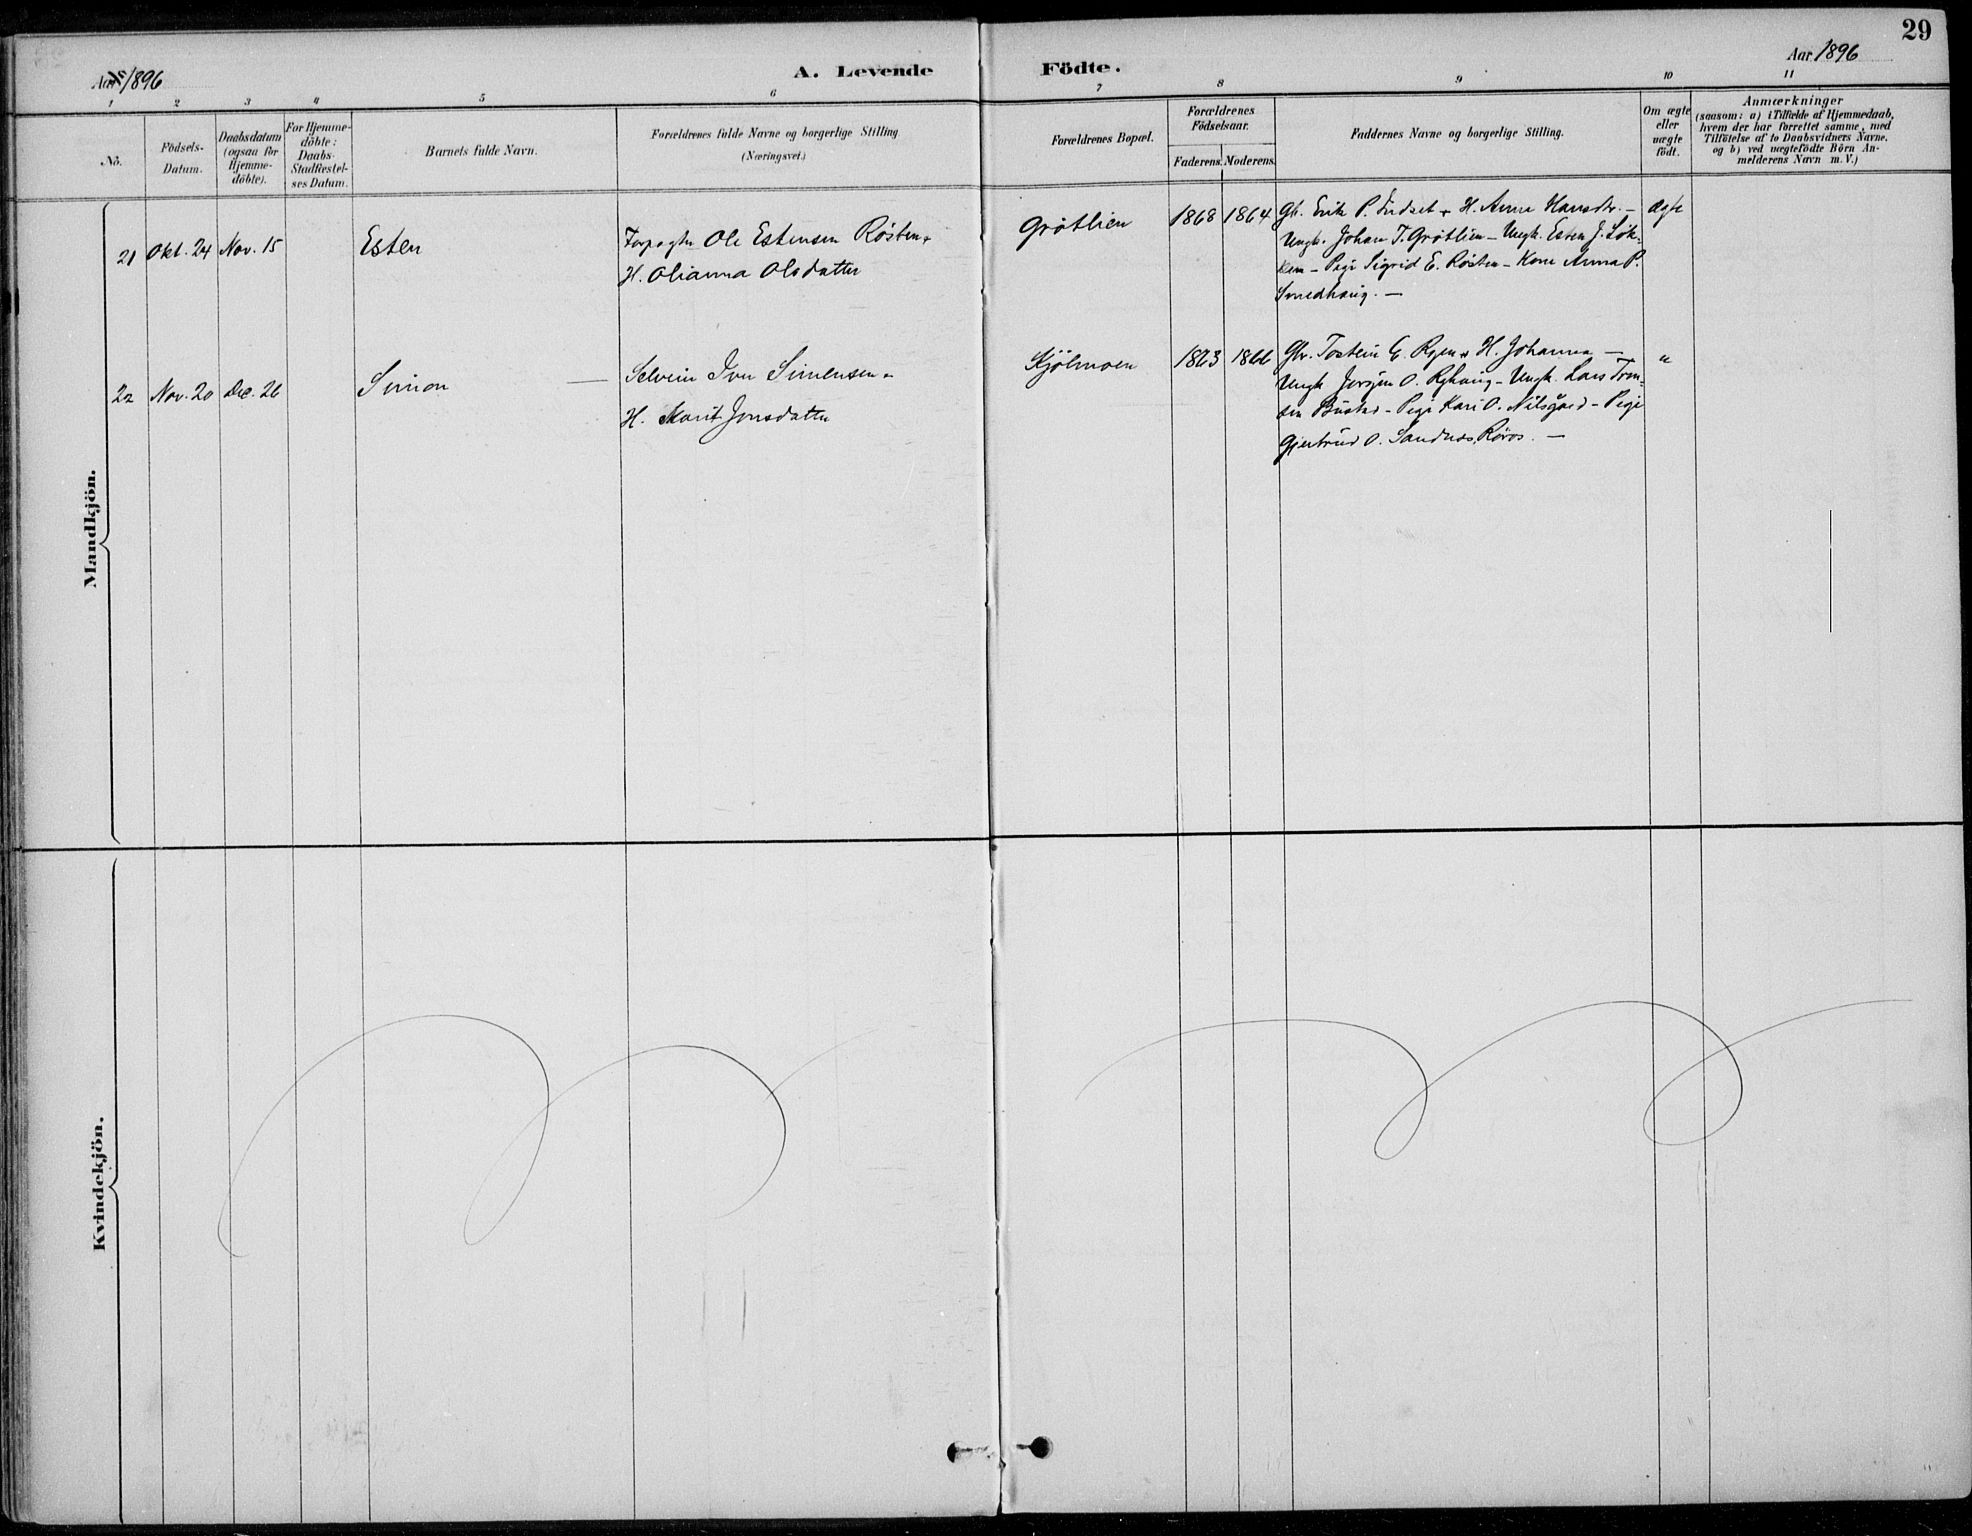 29
Aar 1896
A. Levende Födte.
Aar 1896
1 2 3 4 5 6 7 8 9 10 11
Nö.
Födsels-
Datum.
Daabsdatum
(ogsaa for
Hjemme-
döbte).
For Hjemme-
döbte:
Daabs-
Stadfæstel-
ses Datum.
Barnets fulde Navn.
Forældrenes fulde Navne og borgerlige Stilling
(Næringsvei.)
Forældrenes Bopæl.
Forældrenes
Födselsaar.
Faderens. Moderens.
Faddernes Navne og borgerlige Stilling.
Om ægte
eller
uægte
födt.
Anmærkninger
(saasom: a) i Tilfælde af Hjemmedaab,
hvem der har forrettet samme, med
Tilföielse af to Daabsvidners Navne.
og b) ved uægtefödte Börn An-
melderens Navn m. V.)
Mandkjön.
21 Okt. 24 Nov. 15 Esten
Ole Estensen Røsten
H. Olianna Olsdatter
Grötlien 1868 1864
Gb. Erik P. + H. Anna Hansdtr. –
Ungk. Johan T. Grötlien – Ungk. Esten J. Løk-
ken – Pige Sigrid E. Røsten – Kone Anna P.
Smedhaug. –
Ægte
22 Nov. 20 Dec. 26 Simon –
Selveier Iver Simensen
H. Marit Jonsdatter
Kjölmoen 1863 1866
Gbr. Tostein E. Ryen + H. Johanna –
Ungk Jørgen O. Ryhaug – Ungk. Lars Tron-
sen Bustad – Pige Kari O. Nilsgård – Pige
Gjertrud O. Sandnes, Röros. –
"
Kvindekjön.